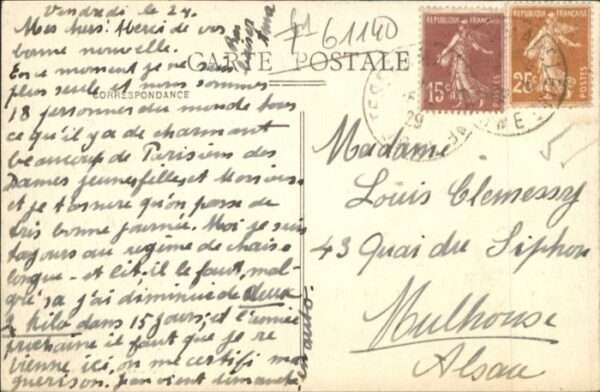 Vendredi le 24.
Mes chers! Merci de vos
bonne nouvelle.
En ce moment je ne suis
plus seule et nous sommes
18 personnes du monde tous
ce qu'il y a de charmant
beaucoup de Parisiens des
Dames jeunes filles et Messieurs
et je t'assure qu'on passe de
très bonne journée. Moi je suis
toujours au régime de chaise
longue - et lit. il le faut, mal-
gré sa j'ai diminué de deux
2 kilo dans 15 jours, et l'année
prochaine il faut que je re
vienne ici, on me certifi ma
guerison. Jean vient dimanche
en auto.
Bon
baiser
Anna
f 61140
CARTE POSTALE
CORRESPONDANCE
REPUBLIQUE FRANÇAISE
15c
POSTES
REPUBLIQUE FRANÇAISE
25c
POSTES
29
Madame
Louis Clemessy
43 Quai du Siphon
Mulhouse
Alsace